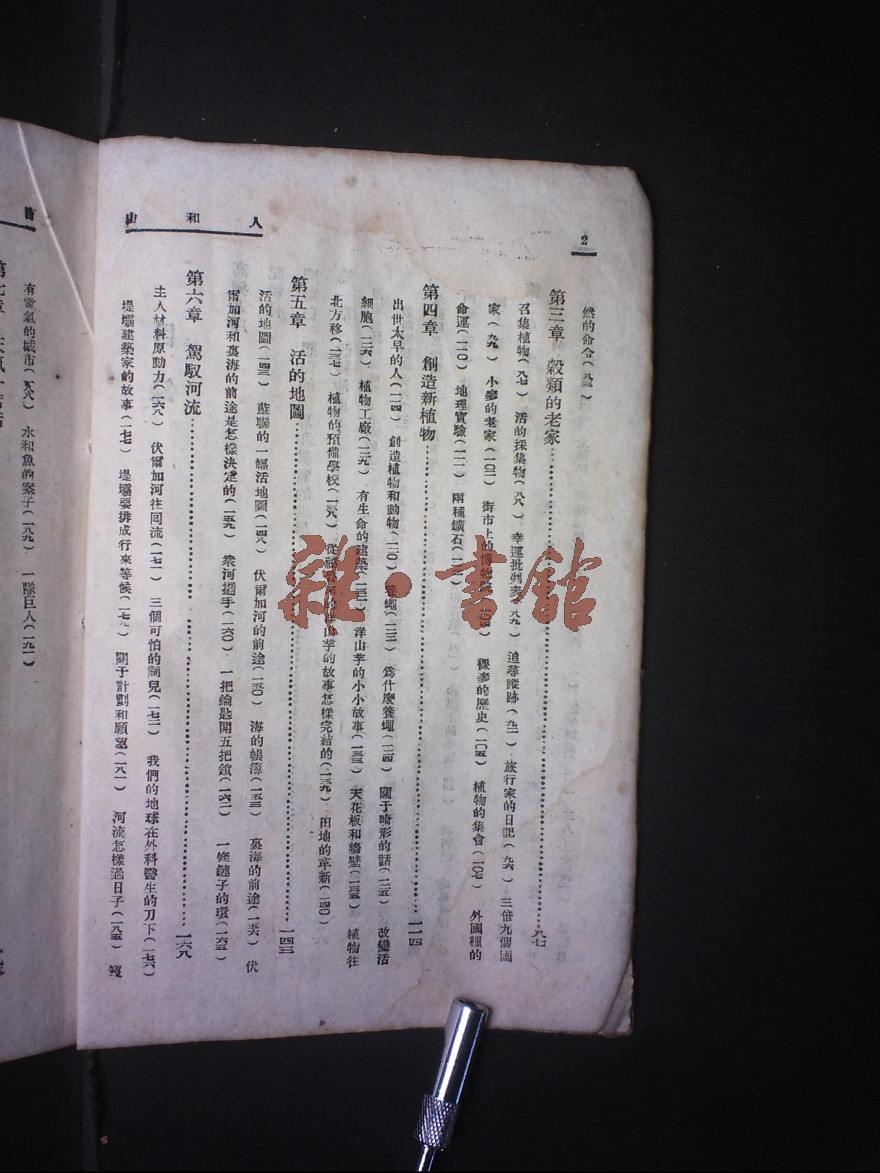 2
人和山
然的命令(八三)
第三章 穀類的老家……八七
召集植物(八七) 活的採集物(八八) 幸運批判表(八九) 追尋蹤跡(九二) 旅行家的日記(九六) 三倍九個國
家(九九) 小麥的老家(一〇二) 街市上的博物 裸麥的歷史(一〇五) 植物的集會(一〇七) 外國種的
命運(一一〇) 地理實驗 兩種鑛石
第四章 創造新植物……一一四
出世太早的人(一一四) 創造植物和動物(一二〇) 蠅(一二三) 爲什麼養蠅(一二四) 關于畸形的話(一二五) 改變活
細胞(一二六) 植物工廠(一二九) 有生命的建築 洋山芋的小小故事(一三三) 天花板和牆壁(一三五) 植物往
北方移(一三七) 植物的預備學校(一三八) 山芋的故事怎樣完結的(一三九) 田地的革新(一四〇)
第五章 活的地圖……一四三
活的地圖(一四三) 蘇聯的一幅活地圖(一四九) 伏爾加河的前途(一五〇) 海的帳簿(一五三) 裏海的前途(一五六) 伏
爾加河和裏海的前途是怎樣決定的(一五九) 衆河握手(一六〇) 一把鑰匙開五把鎖(一六二) 一條鏈子的環(一六五)
第六章 駕馭河流……一六八
主人材料原動力(一六八) 伏爾加河往回流(一七一) 三個可怕的詞兒(一七三) 我們的地球在外科醫生的刀下(一七六)
堤壩建築家的故事(一七七) 堤壩要排成行來等候(一七九) 關于計劃和願望(一八一) 河流怎樣過日子(一八五)
有電氣的城市(一八八) 水和魚的案子(一八九) 一隊巨人(一九一)
雜·書館